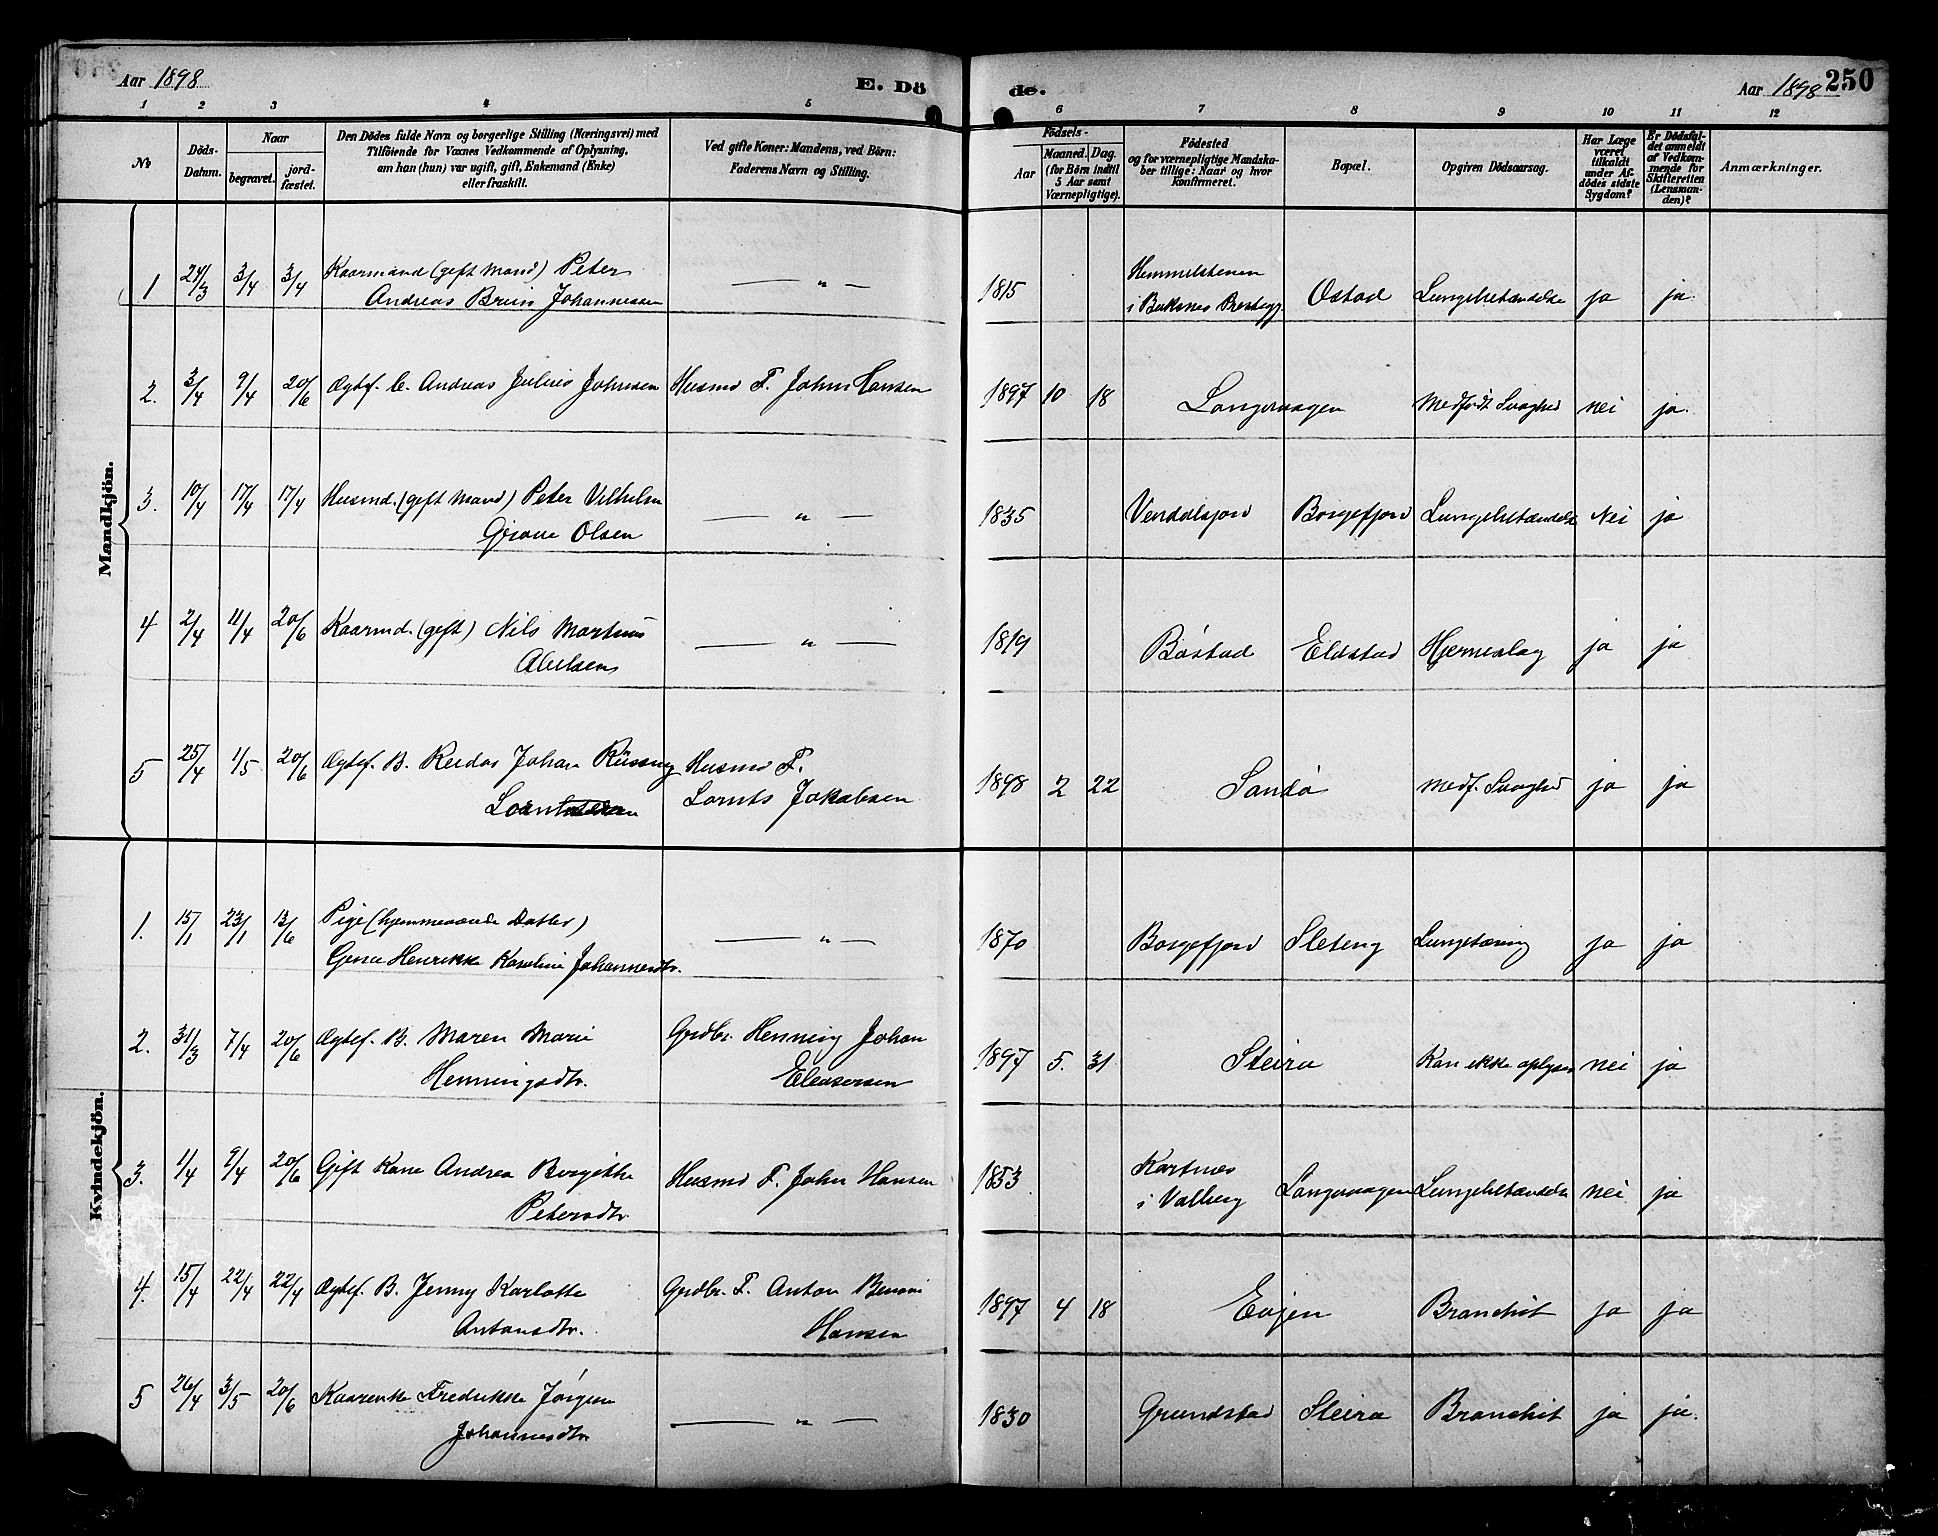 Aar 1898
E. Dö
de.
Aar 1898
250
1 2 3 4 5 6 7 8 9 10 11 12
No
Döds-
Datum.
Naar
begravet.
jord-
fæstet.
Den Dödes fulde Navn og borgerlige Stilling (Næringsvei) med
Tilföiende for Voxnes Vedkommende af Oplysning,
om han (hun) var ugift, gift, Enkemand (Enke)
eller fraskilt.
Ved gifte Koner: Mandens, ved Börn:
Faderens Navn og Stilling.
Födsels-
Aar
Maaned. Dag.
(for Börn indtil
5 Aar samt
Værnepligtige).
Födested
og for værnepligtige Mandska-
ber tillige: Naar og hvor
konfirmeret.
Bopæl.
Opgiven Dödsaarsag.
Har Læge
været
tilkaldt
under Af-
dödes sidste
Sygdom?
Er Dödsfal-
det anmeldt
af Vedkom-
mende for
Skifteretten
(Lensman-
den)?
Anmærkninger.
Mandkjön.
1 24/3 3/4 3/4 Kaarmand (gift Mand) Peter
Andreas Bruun Johannessen — " — 1815 Hemmelstenen
i Buksnes Præstegj. Ostad Lungebetændelse ja ja.
2. 3/4 9/4 20/6 Ægtef. b. Andreas Julius Johnsen Husmd F. John Hansen 1897 10 18 Langevaagen Medfødt Svaghed nei ja.
3. 10/4 17/4 17/4 Husmd. (gift Mand) Peter Vilhelm
Grove Olsen — " — 1835 Vendalsjord Borgefjord Lungebetændelse Nei ja
4 2/4 11/4 20/6 Kaarmd. (gift) Nils Martinus
Abelsen — " — 1819 Bøstad Eldstad Hjerneslag ja ja
5 25/4 1/5 20/6 Ægtef. B. Reidar Johan Rüssing
Lorntsen Husmd F.
Lornts Jakobsen 1898 2 22 Sandø Medf. Svaghed ja ja
Kvindekjön.
1. 15/1 23/1 13/6 Pige (hjemmeværende Datter)
Gjerce Henrikke Karoline Johannesdtr. — " — 1870 Borgefjord Sleteng Lungetæring ja ja
2. 31/3 7/4 20/6 Ægtef. B. Maren Marie
Henningsdtr. Grdbr. Henning Johan
Eleasersen 1897 5. 31 Steira Kan ikke oplyses nei ja
3. 1/4 9/4 20/6 Gift Kone Andrea Borgitte
Petersdtr. Husmd F. John Hansen 1853 Kartnes
i Valberg Langevaagen Lungebetændelse nei ja
4. 15/4 22/4 22/4 Ægtef. B. Jenny Karlotte
Antonsdtr. Grdbr. F. Anton Benoni
Hansen 1897 4 18 Evjen Bronchit ja ja
5 26/4 3/5 20/6 Kaarenke Fredrikke Jörgine
Johannesdtr. — " — 1830 Grundstad Steira Bronchit ja ja.